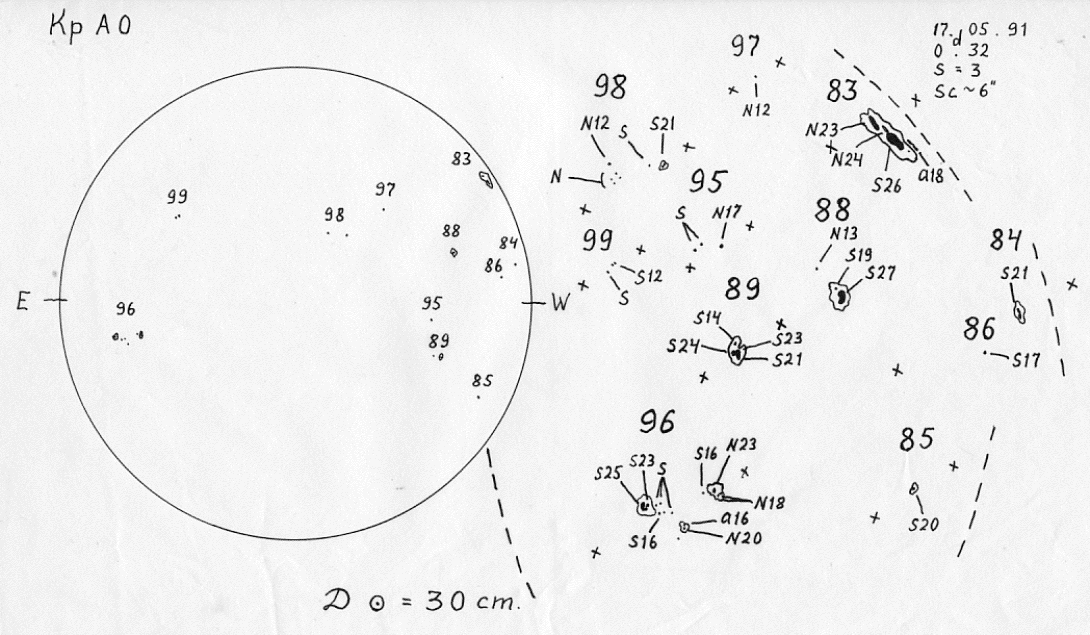 Kp A O
17. 05 . 91
0 d. 32
S = 3
Sc ~ 6"
97
N12
98
N12 S S21
N
83
N23
N24
S26
a18
83
99
97
98
88
84
86
E
W
96
95
89
85
95
S N17
99
S12
S
88
N13
S19
S27
84
S21
86
S17
89
S14
S24
S23
S21
96
S25 S23 S
S16 N23
N18
S16
a16
N20
85
S20
D ⊙ = 30 cm.